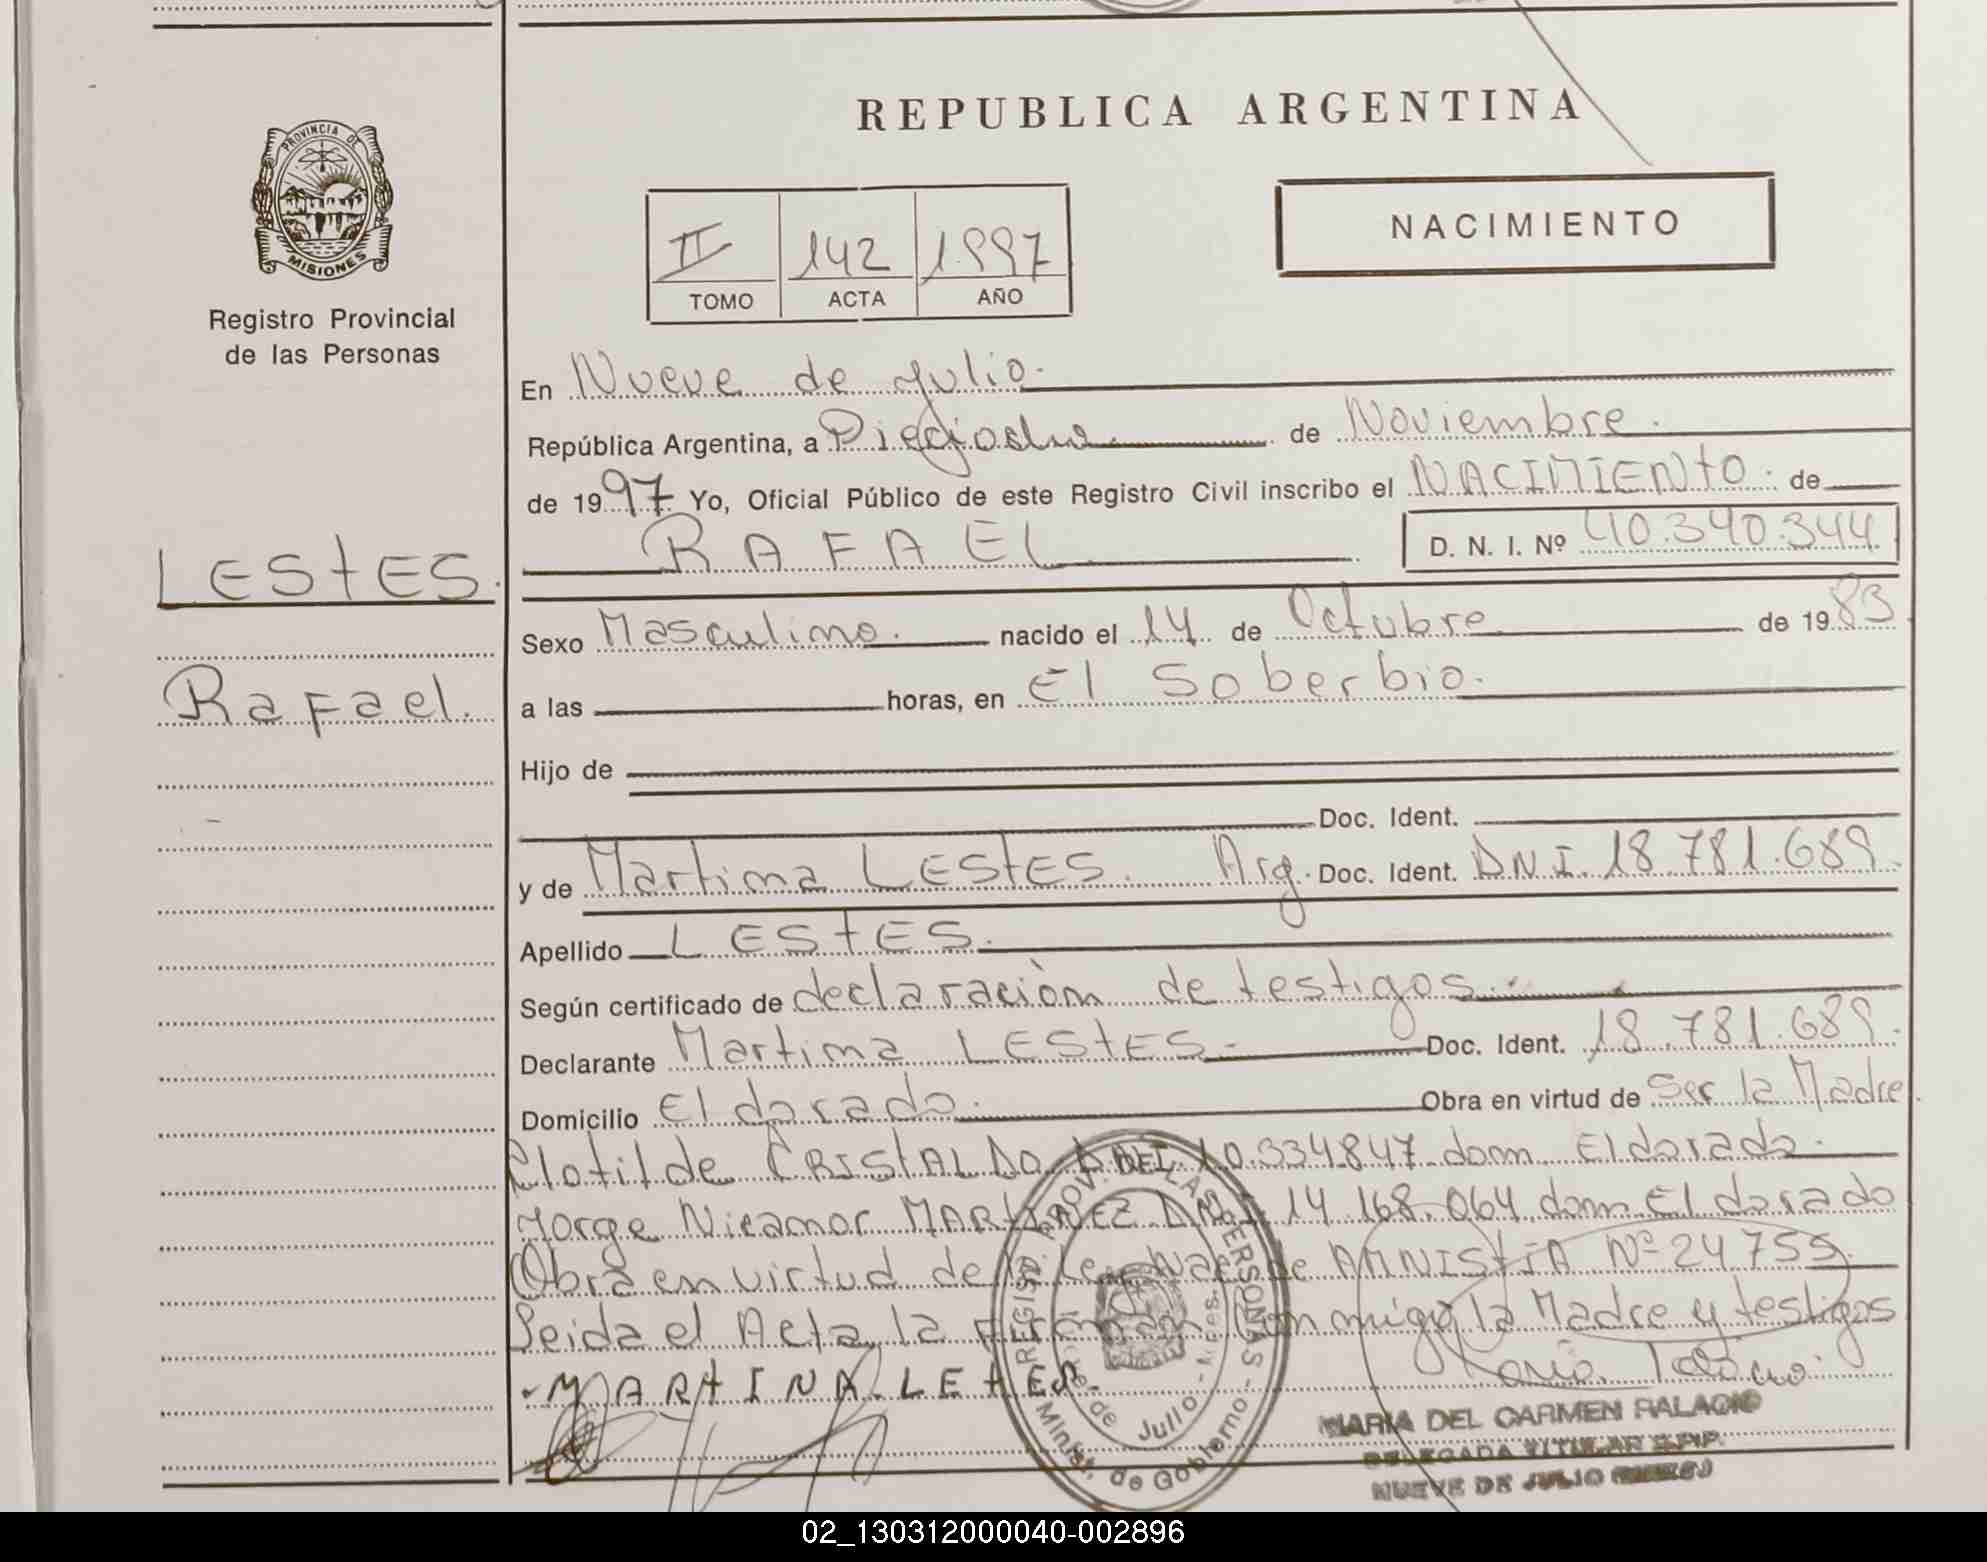 REPUBLICA ARGENTINA
PROVINCIA DE
MISIONES
Registro Provincial
de las Personas
NACIMIENTO
II 142 1997
TOMO ACTA AÑO
En Nueve de Julio.
República Argentina, a Dieciocho de Noviembre.
de 1997 Yo, Oficial Público de este Registro Civil inscribo el NACIMIENTO. de
RAFAEL D. N. I. Nº 40.340.344
LESTES.
Rafael.
Sexo Masculino. nacido el 14 de Octubre de 1983
a las horas, en El Soberbio.
Hijo de
Doc. Ident.
y de Martina LESTES. Arg. Doc. Ident. DNI. 18.781.689.
Apellido LESTES.
Según certificado de declaraciòn de testigos.
Declarante Martina LESTES. Doc. Ident. 18.781.689.
Domicilio Eldorado. Obra en virtud de Ser la Madre.
Clotilde CRISTALDO 10.334.847 dom Eldorado.
Jorge Nicanor MARTINEZ DNI. 14.168.064 dom Eldorado
Obra en virtud de la Ley de AMNISTIA Nº 24755.
Leida el Acta la firman Conmigo la Madre y testigos
MARTINA LETES.
REGIST. PROV. DE LAS PERSONAS
Nueve de Julio - Mnes.
Minist. de Gobierno
MARIA DEL CARMEN PALACIO
DELEGADA TITULAR R.P.P.
NUEVE DE JULIO
02_130312000040-002896